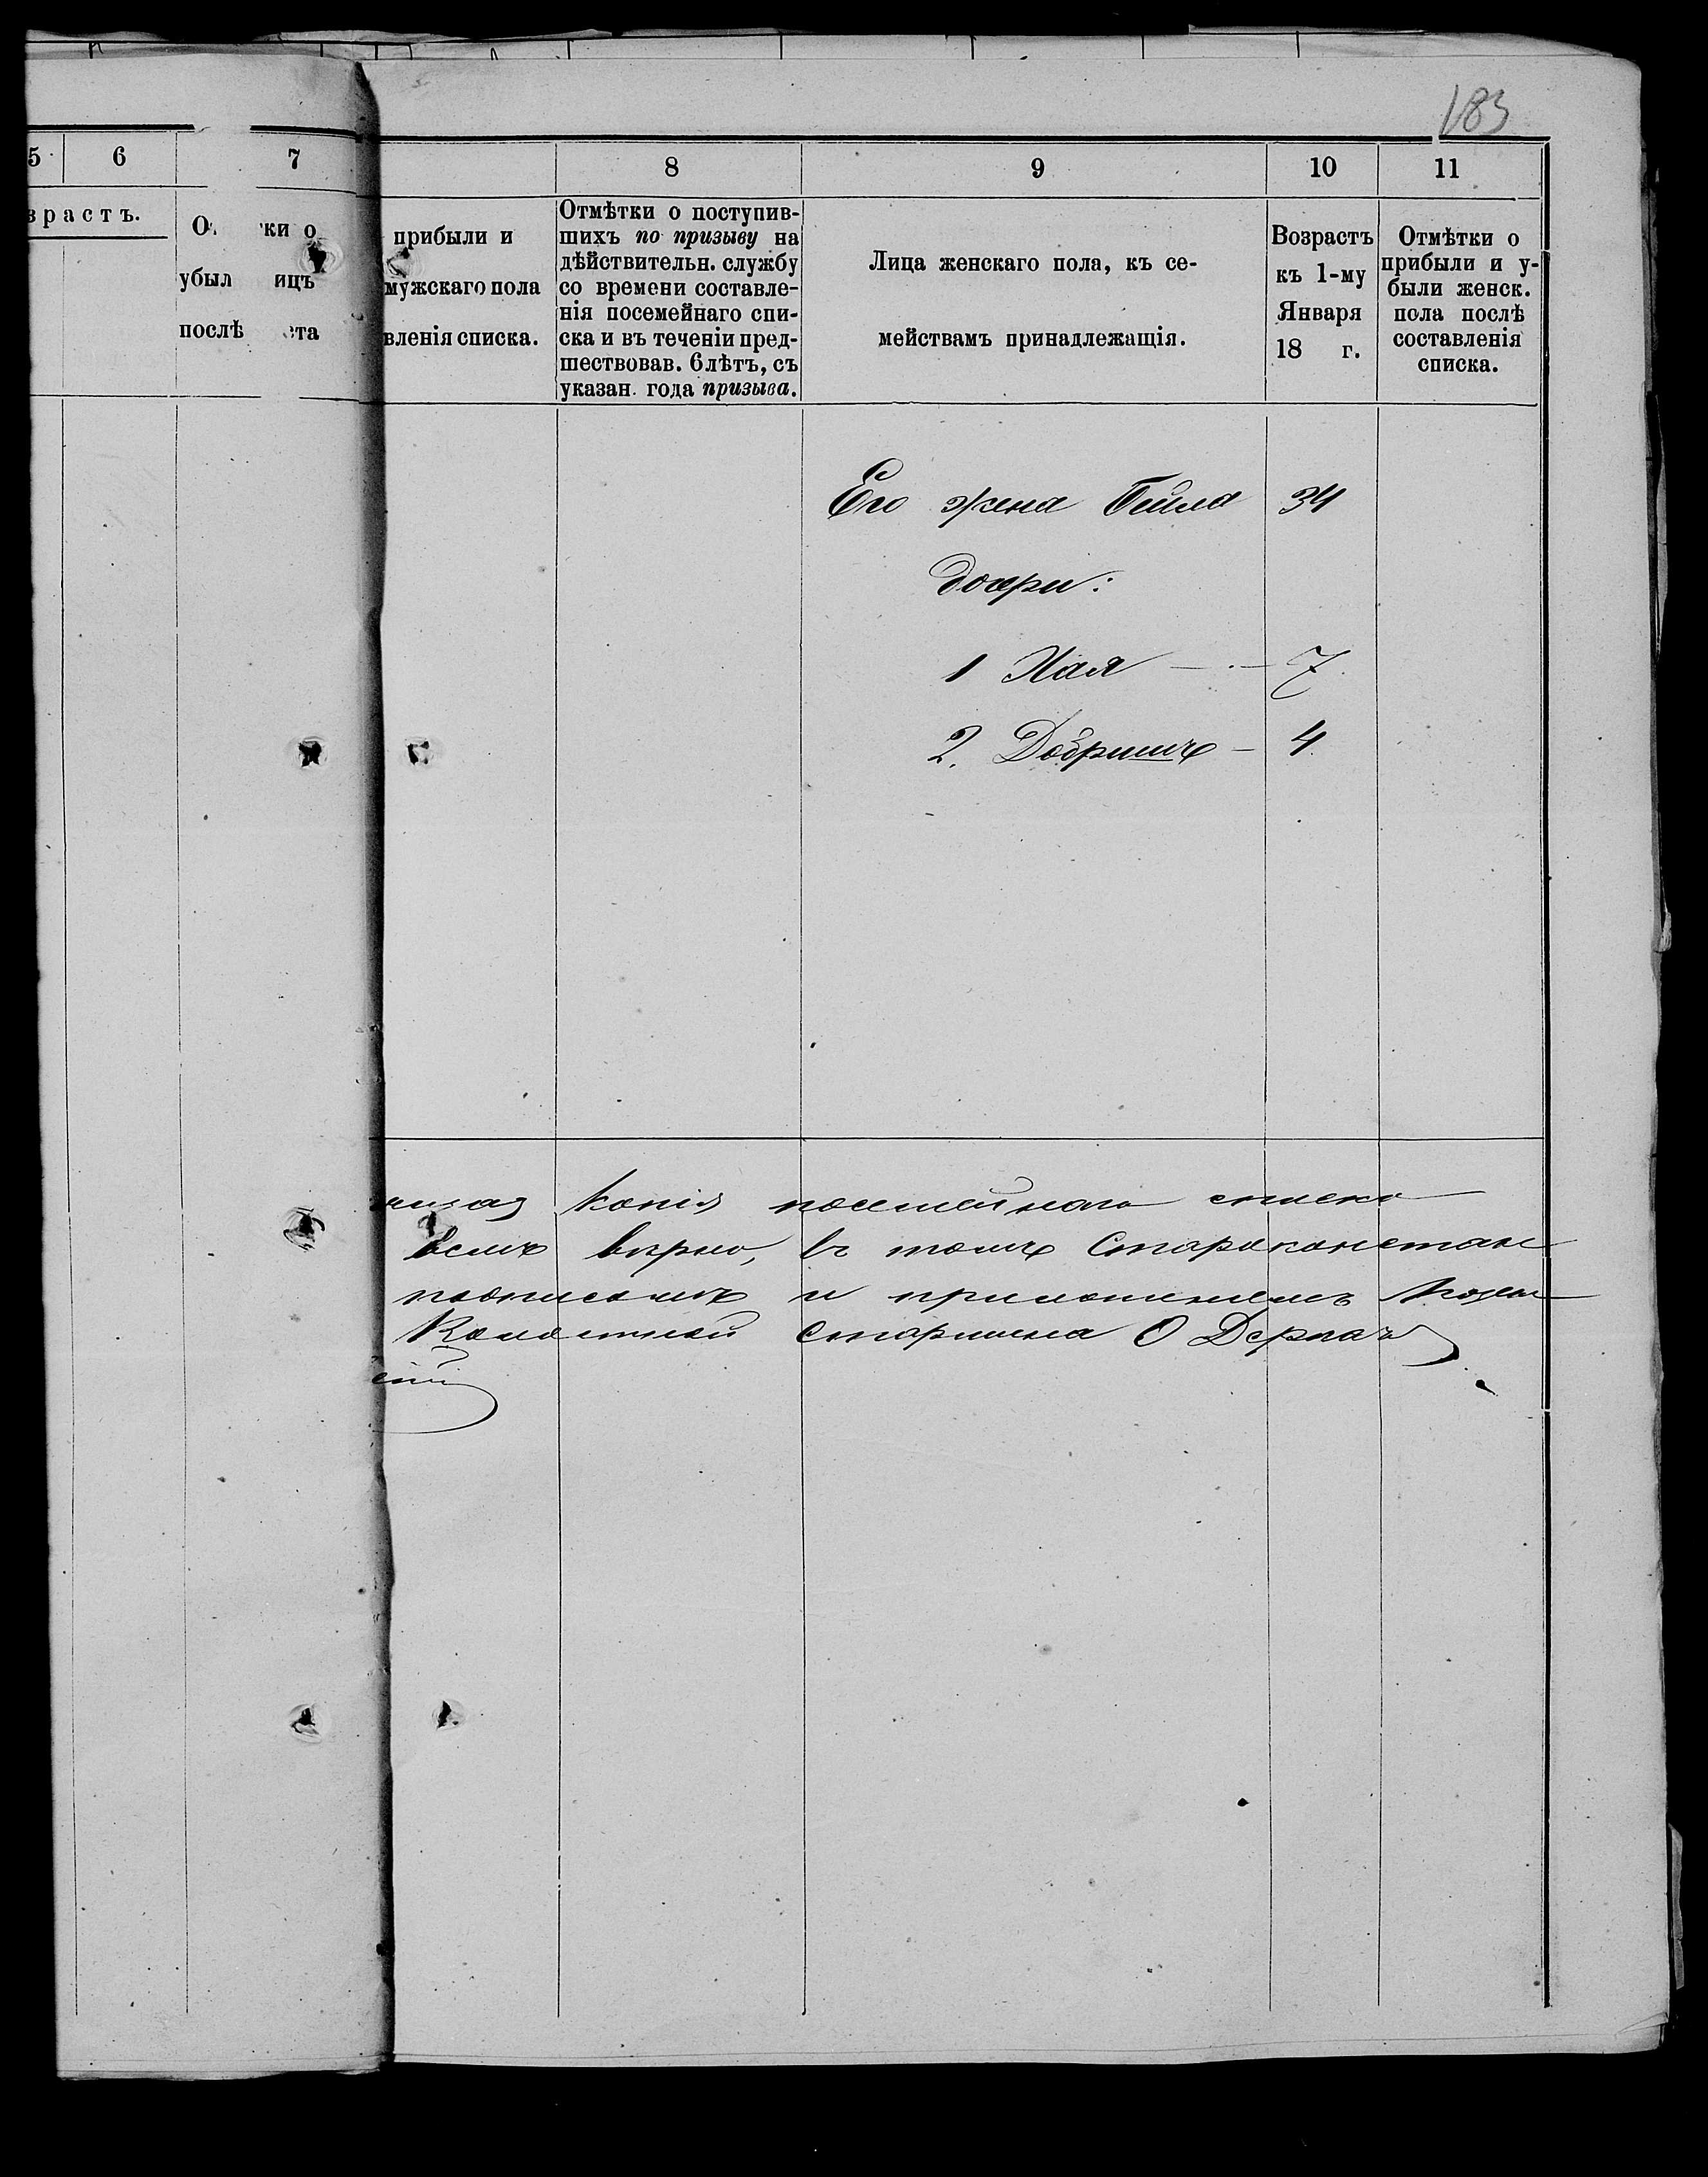 183
5 6 7 8 9 10 11
зрастъ.
ки о
убыл ицъ
послѣ ета
прибыли и
мужскаго пола
вленія списка.
Отмѣтки о поступив-
шихъ по призыву на
дѣйствительн. службу
со времени составле-
нія посемейнаго спи-
ска и въ теченіи пред-
шествовав. 6 лѣтъ, съ
указан. года призыва.
Лица женскаго пола, къ се-
мействамъ принадлежащія.
Возрастъ
къ 1-му
Января
18 г.
Отмѣтки о
прибыли и у-
были женск.
пола послѣ
составленія
списка.
Его жена Бейла 34
дочери:
1 Хая — 7
2. Добришъ — 4
копія посемейнаго списка
всемъ вѣрно, въ томъ Староконстан
подписомъ и приложениемъ
старшина Дерпачъ